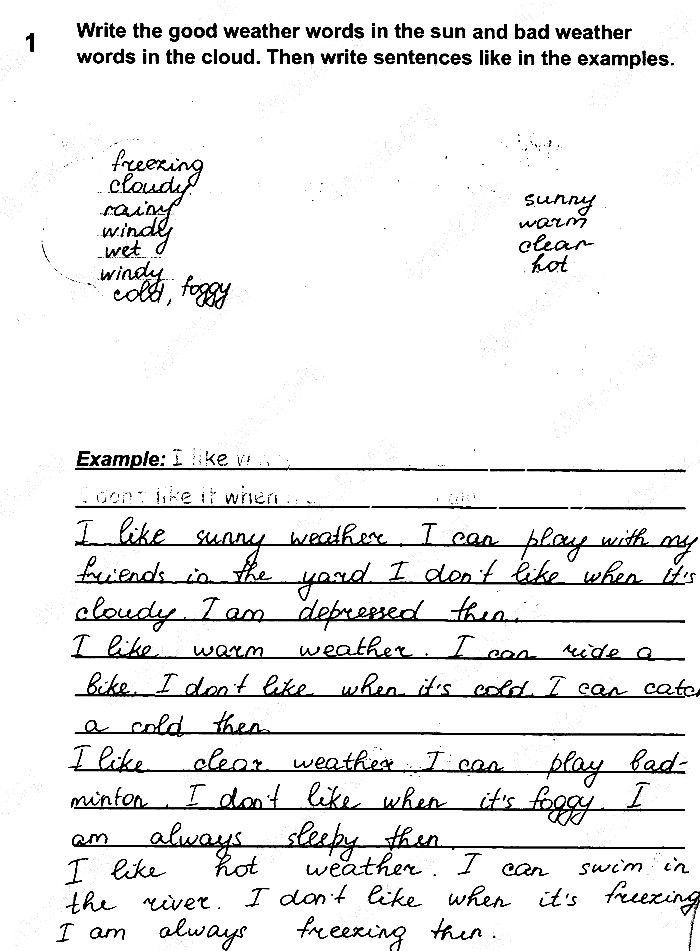 1
Write the good weather words in the sun and bad weather
words in the cloud. Then write sentences like in the examples.
freezing
cloudy
rainy
windy
wet
windy
cold, foggy
sunny
warm
clear
hot
Example: I like
like it when
I like sunny weather. I can play with my
friends in the yard I don't like when it's
cloudy. I am depressed then.
I like warm weather. I can ride a
bike. I don't like when it's cold. I can catch
a cold then.
I like clear weather. I can play bad-
minton. I don't like when it's foggy. I
am always sleepy then.
I like hot weather. I can swim in
the river. I don't like when it's freezing
I am always freezing then.